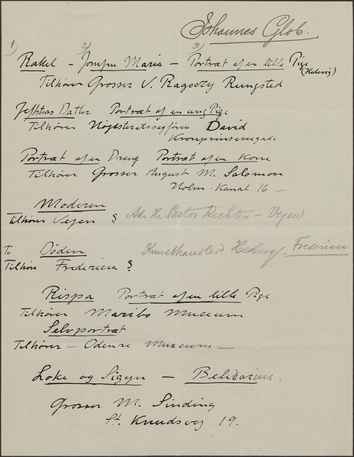 Johannes Glob.
1) 2) 3)
Rakel - Jomfru Maria - Portræt af en lille Pige
(Hedvig)
Tilhører Grosser V. Ragoczy Rungsted
Jefthas Datter Portræt af en ung Pige
Tilhører Højesteretssagfører David
Kronprinsessegade
Portræt af en Dreng Portræt af en Kone
Tilhører Grosser August M. Salomon
Holm. Kanal 16 -
Moderen
Tilhører Vejen ? Adr. H. Doctor - Vejen
To Odin Kunsthandler Fredericia
Tilhører Fredericia ?
Rispa Portræt af en lille Pige
Tilhører Maribo Museum
Selvportræt
Tilhører - Odense Museum -
Loke og Sigyn - Belisarius.
Grosser M. Sinding
St. Knudsvej 19.